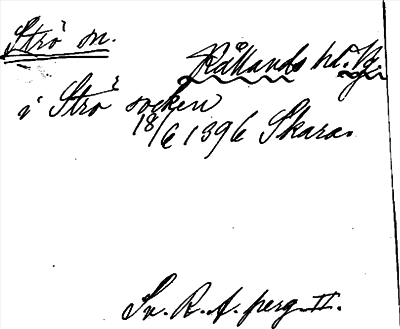 Strö sn. Kållands hd. Vg.
i Strö socken
18/6 1396 Skara.
Sv. R. A. perg. II.